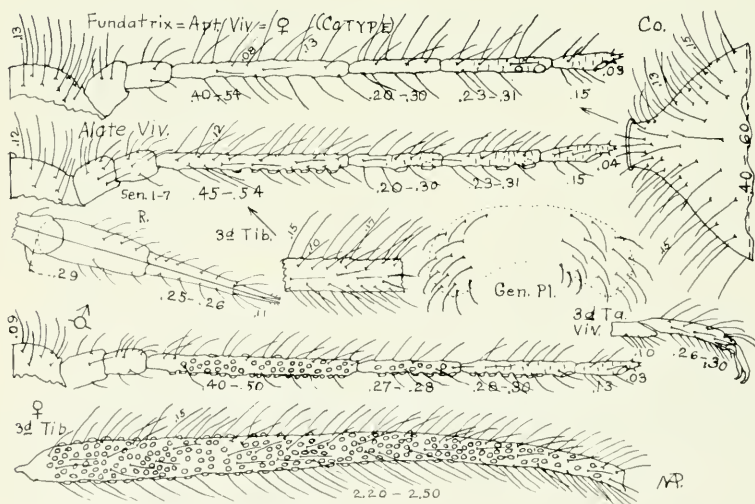 Fundatrix = Apt. Viv = ♀ (COTYPE)
Co.
.13
.08
.13
.40-.54
.20-.30
.23-.31
.15
.03
.13
.15
.40-.60
.15
Alate Viv.
.12
.12
Sen. 1-7
.45-.54
.20-.30
.23-.31
.15
.04
R.
.29
.25-.26
.11
3d Tib.
.15
.10
.17
Gen. Pl.
3d Ta.
Viv.
.10
.26-.30
♂
.09
.40-.50
.27-.28
.28-.30
.13
.03
♀
3d Tib.
.15
2.20-2.50